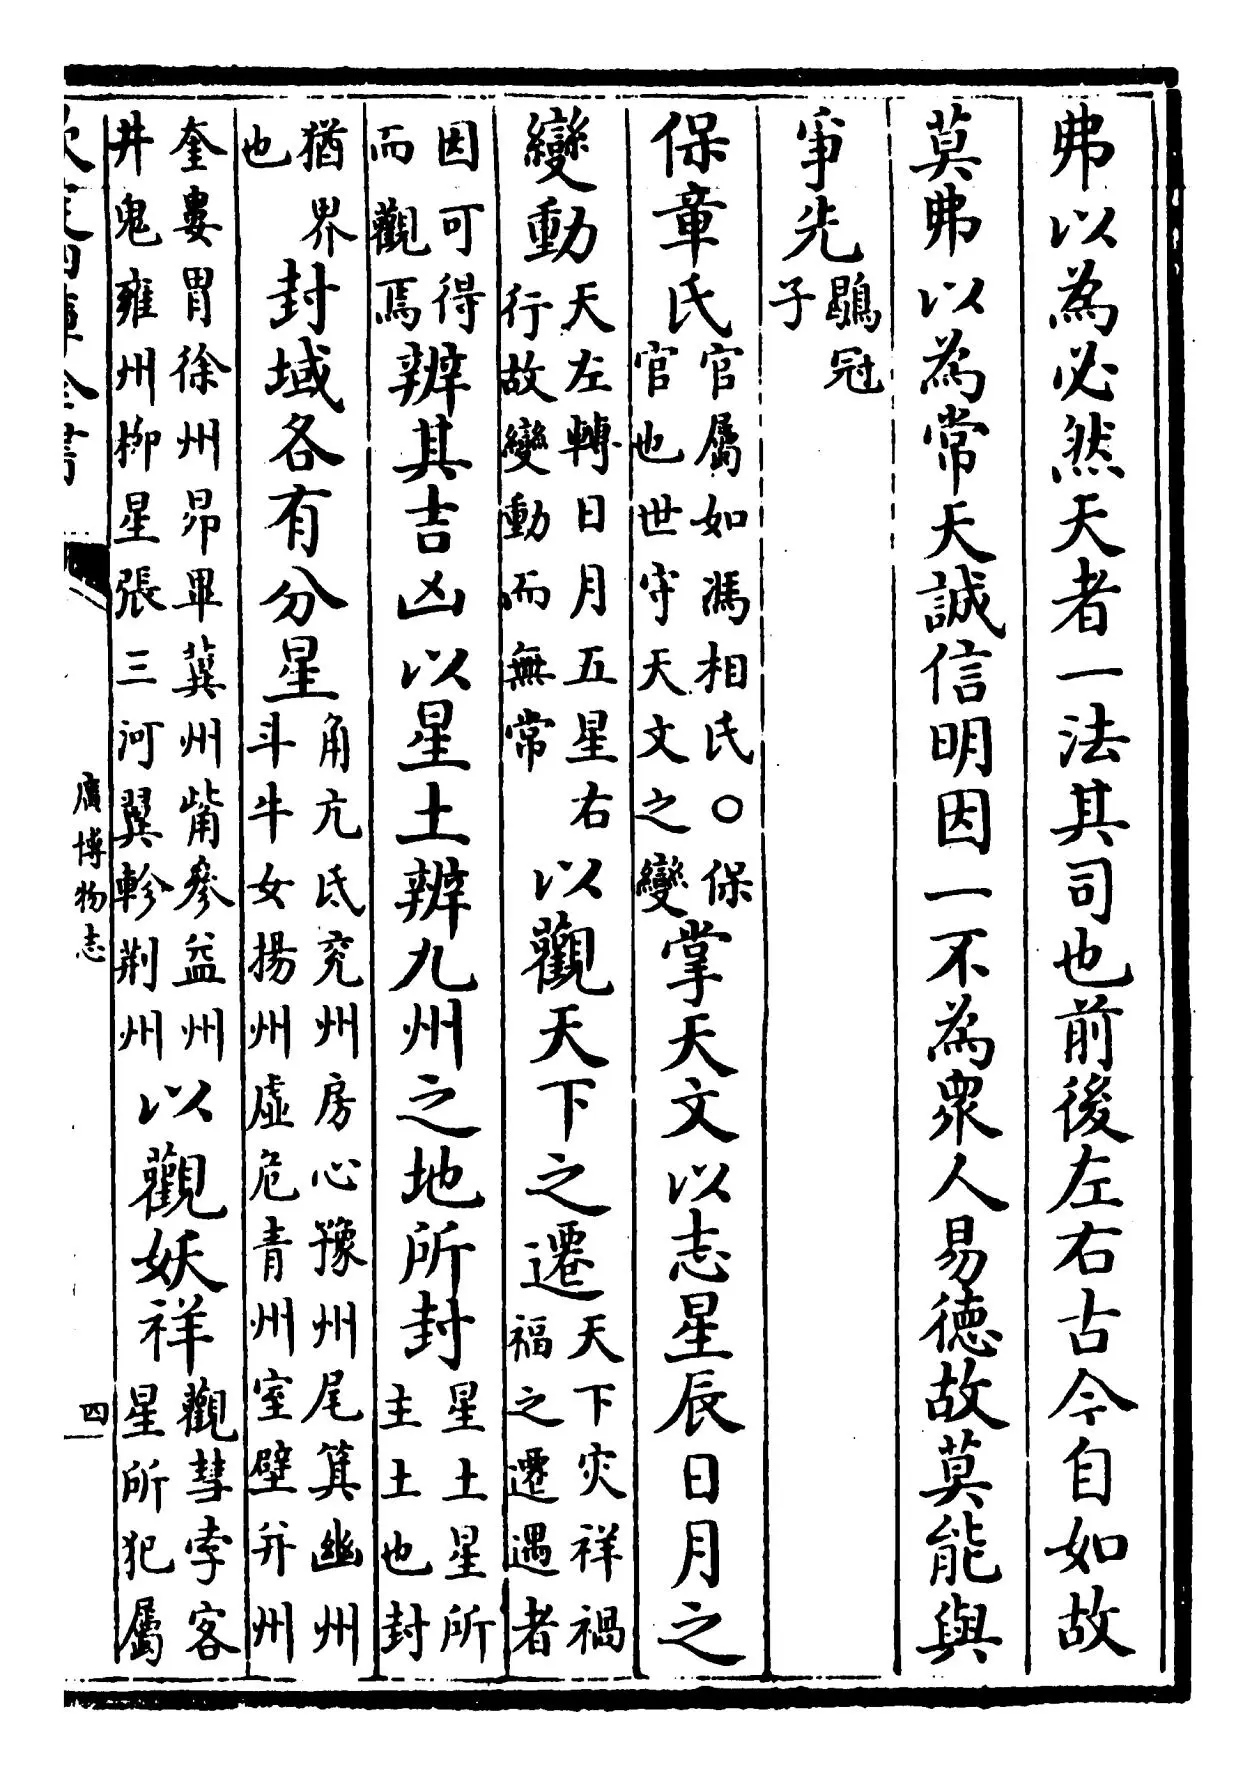 弗以為必然天者一法其司也前後左右古今自如故
莫弗以為常天誠信明因一不為衆人易德故莫能與
爭先鶡冠
子
保章氏官屬如馮相氏○保
官也世守天文之變掌天文以志星辰日月之
變動天左轉日月五星右
行故變動而無常以觀天下之遷天下灾祥禍
福之遷遇者
因可得
而觀焉辨其吉凶以星土辨九州之地所封星土星所
主土也封
猶界
也封域各有分星角亢氐兖州房心豫州尾箕幽州
斗牛女揚州虛危青州室壁并州
奎婁胃徐州昴畢冀州觜參益州
井鬼雍州柳星張三河翼軫荆州以觀妖祥觀彗孛客
星所犯屬
欽定四庫全書
廣博物志
四